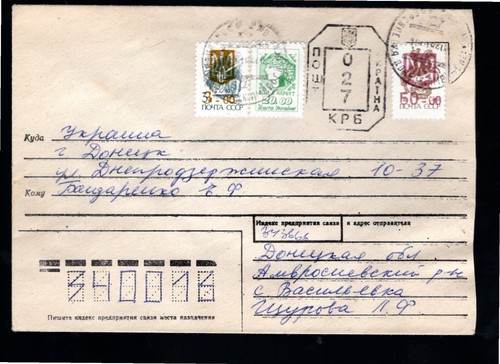 3-00
ПОЧТА СССР
20.00
Пошта України
ПОШТА
УКРАЇНА
0
2
7
КРБ
50-00
ПОЧТА СССР
Куда Украина
г Донецк
ул Днепродзержинская 10-37
Кому Бащаренко В. Ф
Индекс предприятия связи и адрес отправителя
Донецкая обл
Амвросиевский р-н
с Васильевка
Щурова Л. Ф.
340016
Пишите индекс предприятия связи места назначения